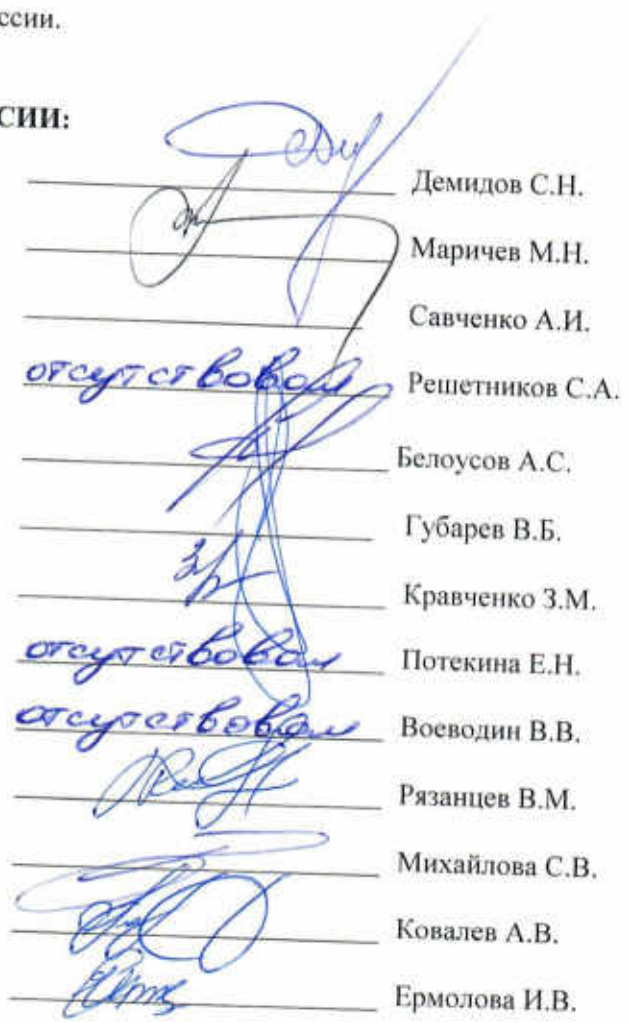 ссии.
СИИ:
Демидов С.Н.
Маричев М.Н.
Савченко А.И.
отсутствовал Решетников С.А.
Белоусов А.С.
Губарев В.Б.
Кравченко З.М.
отсутствовал Потекина Е.Н.
отсутствовал Воеводин В.В.
Рязанцев В.М.
Михайлова С.В.
Ковалев А.В.
Ермолова И.В.